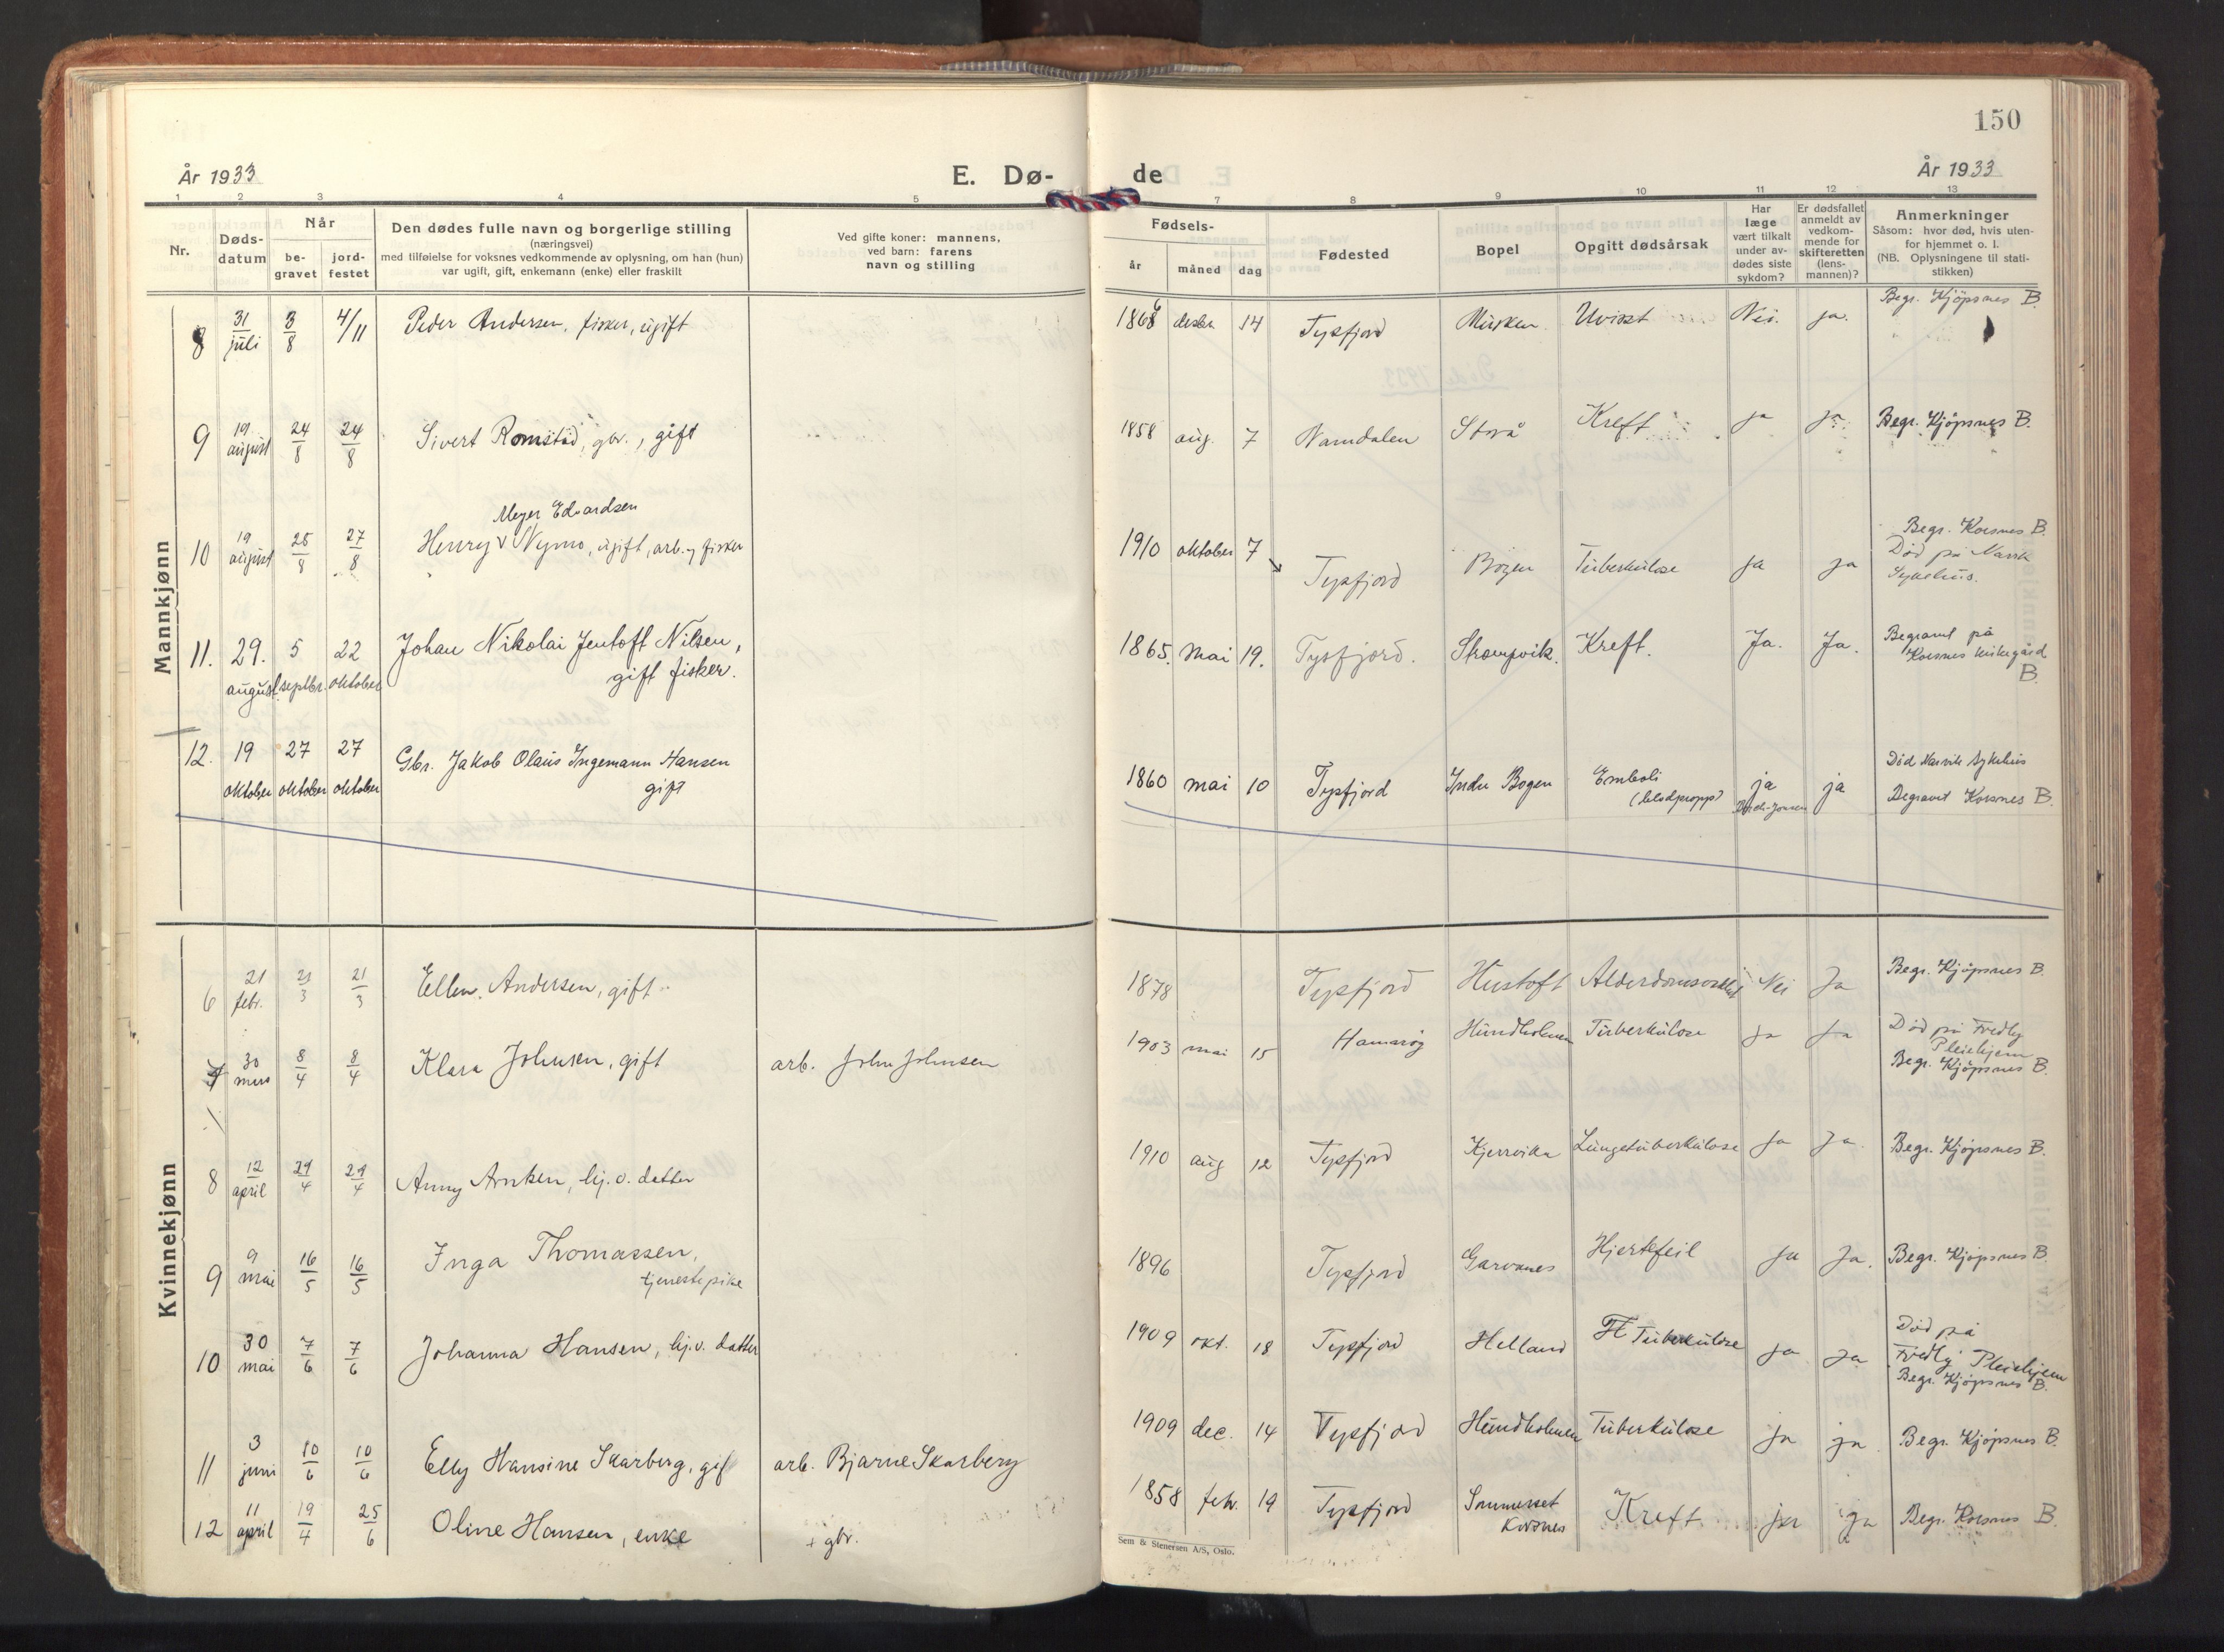 150
År 1933
E. Dø-
de
År 1933
1 2 3 4 5 7 8 9 10 11 12 13
Nr.
Døds-
datum
Når
be-
gravet
jord-
festet
Den dødes fulle navn og borgerlige stilling
(næringsvei)
med tilføielse for voksnes vedkommende av oplysning, om han (hun)
var ugift, gift, enkemann (enke) eller fraskilt
Ved gifte koner: mannens,
ved barn: farens
navn og stilling
Fødsels-
år måned dag
Fødested
Bopel
Opgitt dødsårsak
Har
læge
vært tilkalt
under av-
dødes siste
sykdom?
Er dødsfallet
anmeldt av
vedkom-
mende for
skifteretten
(lens-
mannen)?
Anmerkninger
Såsom: hvor død, hvis uten-
for hjemmet o. l.
(NB. Oplysningene til stati-
stikken)
Mannkjønn
8 31 juli 3/8 4/11 Peder Andersen, fisker, ugift 1866 desbr 14 Tysfjord Musken Uvisst Nei. ja. Begr. Kjöpsnes B
9 19 august 24/8 24/8 Sivert Romstad, gbr., gift 1858 aug. 7 Namdalen Storå Kreft ja ja Begr. Kjöpsnes B.
Meyer Edvardsen
10 19 august 25/8 27/8 Henry v Nymo, ugift, arb. og fisker 1910 oktober 7 Tysfjord Bogen Tuberkulose ja ja Begr. Korsnes B.
Död på Narvik
Sykehus.
11. 29. august 5 septbr. 22 oktober Johan Nikolai Jentoft Nilsen,
gift fisker.
1865. mai 19. Tysfjord. Skarpvik. Kreft. Ja. Ja. Begravet på
Korsnes kirkegård
B.
12. 19 oktober 27 oktober 27 oktober Gbr. Jakob Olaus Ingemann Hansen
gift
1860 mai 10 Tysfjord Indre Bogen Emboli
(blodpropp)
ja ja Död Narvik sykehus
Begravet Korsnes B.
Kvinnekjønn
6 21 febr. 21/3 21/3 Ellen Andersen, gift 1878 Tysfjord Hustoft Alderdomssvakhet Nei Ja Begr. Kjöpsnes B.
7 30 mars 8/4 8/4 Klara Johnsen, gift arb. John Johnsen 1903 mai 15 Hamarøy Hundholmen Tuberkulose ja ja Död på Fredly
Pleiehjem
Begr. Kjöpsnes B.
8 12 april 24/4 24/4 Anny Arntsen, hj.v. datter 1910 aug 12 Tysfjord Kjerrvika Lungetuberkulose ja ja Begr. Kjöpsnes B.
9 9 mai 16/5 16/5 Inga Thomassen,
tjenestepike
1896 Tysfjord Garvanes Hjertefeil ja Ja. Begr. Kjöpsnes B
10 30 mai 7/6 7/6 Johanna Hansen, hj.v. datter 1909 okt. 18 Tysfjord Helland Tuberkulose ja ja Död på
Fredly Pleiehjem
Begr. Kjöpsnes B.
11 3 juni 10/6 10/6 Elly Hansine Skarberg, gif arb. Bjarne Skarberg 1909 dec. 14 Tysfjord Hundholmen Tuberkulose ja ja Begr. Kjöpsnes B.
12 11 april 19/4 25/6 Oline Hansen, enke + gbr. 1858 febr. 19 Tysfjord Sommerset
Korsnes
Kreft ja ja Begr. Korsnes B.
Sem & Stenersen A/S, Oslo.